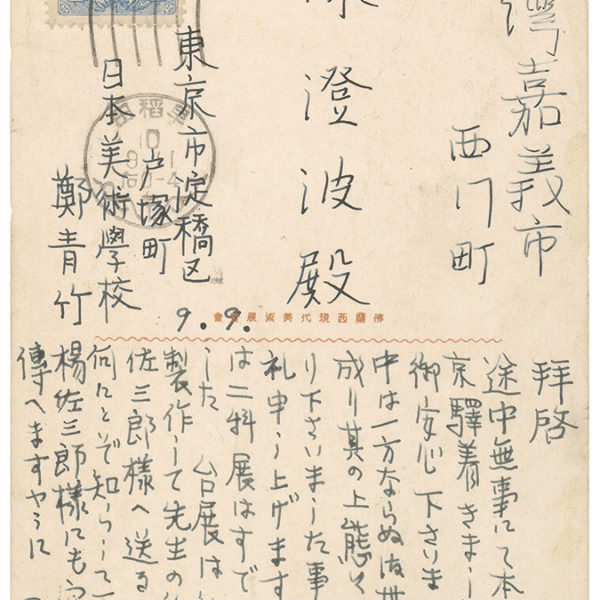 灣嘉義市
西门町
澄波殿
東京市淀橋区
戸塚町
日本美術學校
鄭青竹
9.9.
佛蘭西現代美術展會
拝啓
途中無事にて本
京驛着きまし
御安心下さいま
中は一方ならぬ御世
成り其の上態々
り下さいました事
礼申し上げます
は二科展はすで
した 台展は
製作して先生の
佐三郎様へ送る
何にとぞ知らして
楊佐三郎様にも
傳へますやうに